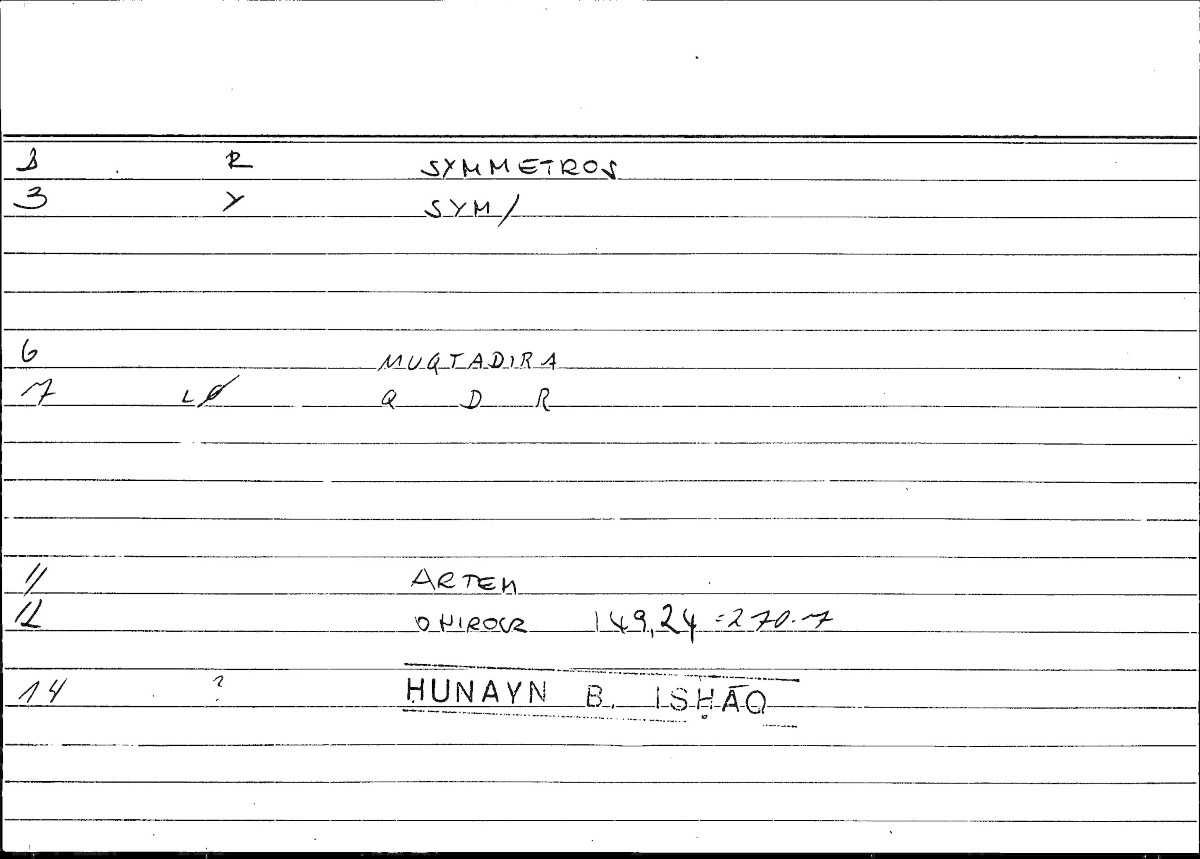 R SYMMETROS
3 Y SYM/
6 MUQTADIRA
7 L Ø Q D R
11 ARTEM
12 ONIROCR 149,24 = 270.7
14 ? ḤUNAYN B. ISḤĀQ